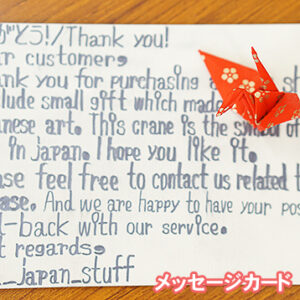 がとう!/Thank you!
ar customer,
ank you for purchasing
clude small gift which made
anese art. This crane is the symbol of
in Japan. I hope you like it.
ase feel free to contact us related t
ase. And we are happy to have your pos
-back with our service.
t regards,
_japan_stuff
メッセージカード